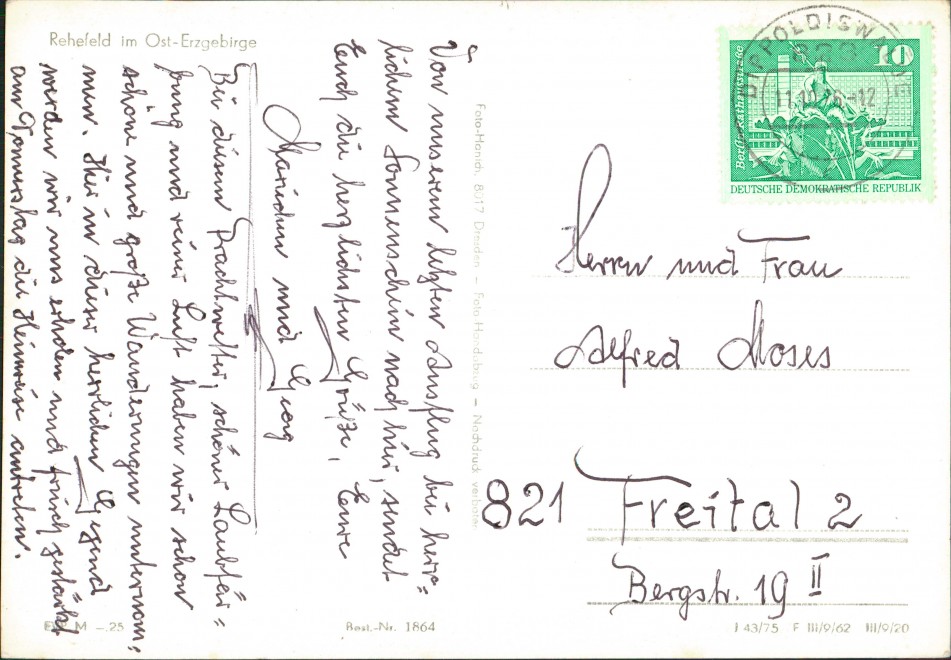 Rehefeld im Ost-Erzgebirge
Von unserem letzten Ausflug bei herr=
lichem Sonnenschein nach hier, sendet
Euch die herzlichsten Grüße, Eure
Mariechen und Georg
Bei diesem Prachtwetter, schöner Laubfär=
bung und reiner Luft haben wir schon
schöne und große Wanderungen unternom=
men. Hier in dieser herrlichen Gegend
werden wir uns erholen und frisch gestärkt
am Donnerstag die Heimreise antreten.
Foto-Handr. 8017 Dresden – Foto-Handabzug – Nachdruck verboten
DIPPOLDISWALDE
11.10.76-12
10
DEUTSCHE DEMOKRATISCHE REPUBLIK
Herrn und Frau
Alfred Moses
821 Freital 2
Bergstr. 19 II
M –.25
Best.-Nr. 1864
J 43/75 F III/9/62 III/9/20